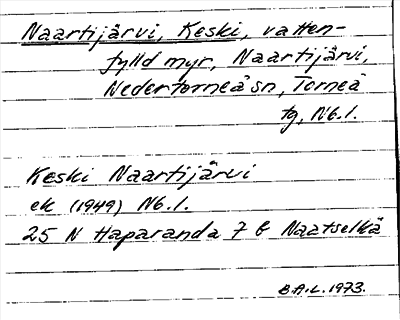 Naartijärvi, Keski, vatten-
fylld myr, Naartijärvi,
Nedertorneå sn, Torneå
tg, Nb.l.
Keski Naartijärvi
ek (1949) Nb.l.
25 N Haparanda 7 b Naatselkä
B.A.L. 1973.